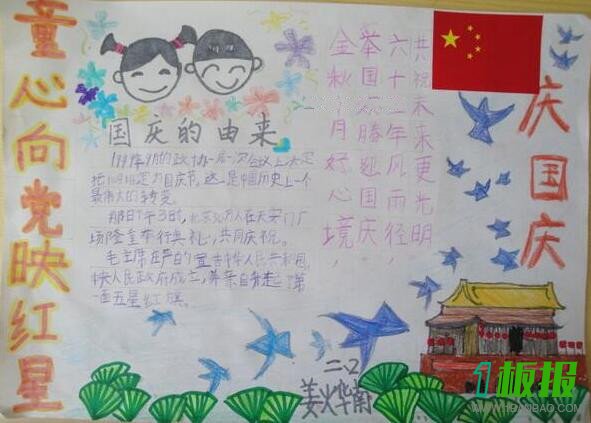 童心向党映红星
庆国庆
共祝未来更光明
六十二年风雨径，
举国欢腾迎国庆，
金秋月好心境，
国庆的由来
定
把10月1日定为国庆节，这一是中国历史上一个
最伟大的转变。
那日下午3时，北京30万人在天安门广
场隆重举行典礼，共同庆祝。
毛主席在庄严的宣告中华人民共和国，
中央人民政府成立，并亲自升起了第
一面五星红旗。
二.2
姜烨南
1板报
WWW.1BANBAO.COM